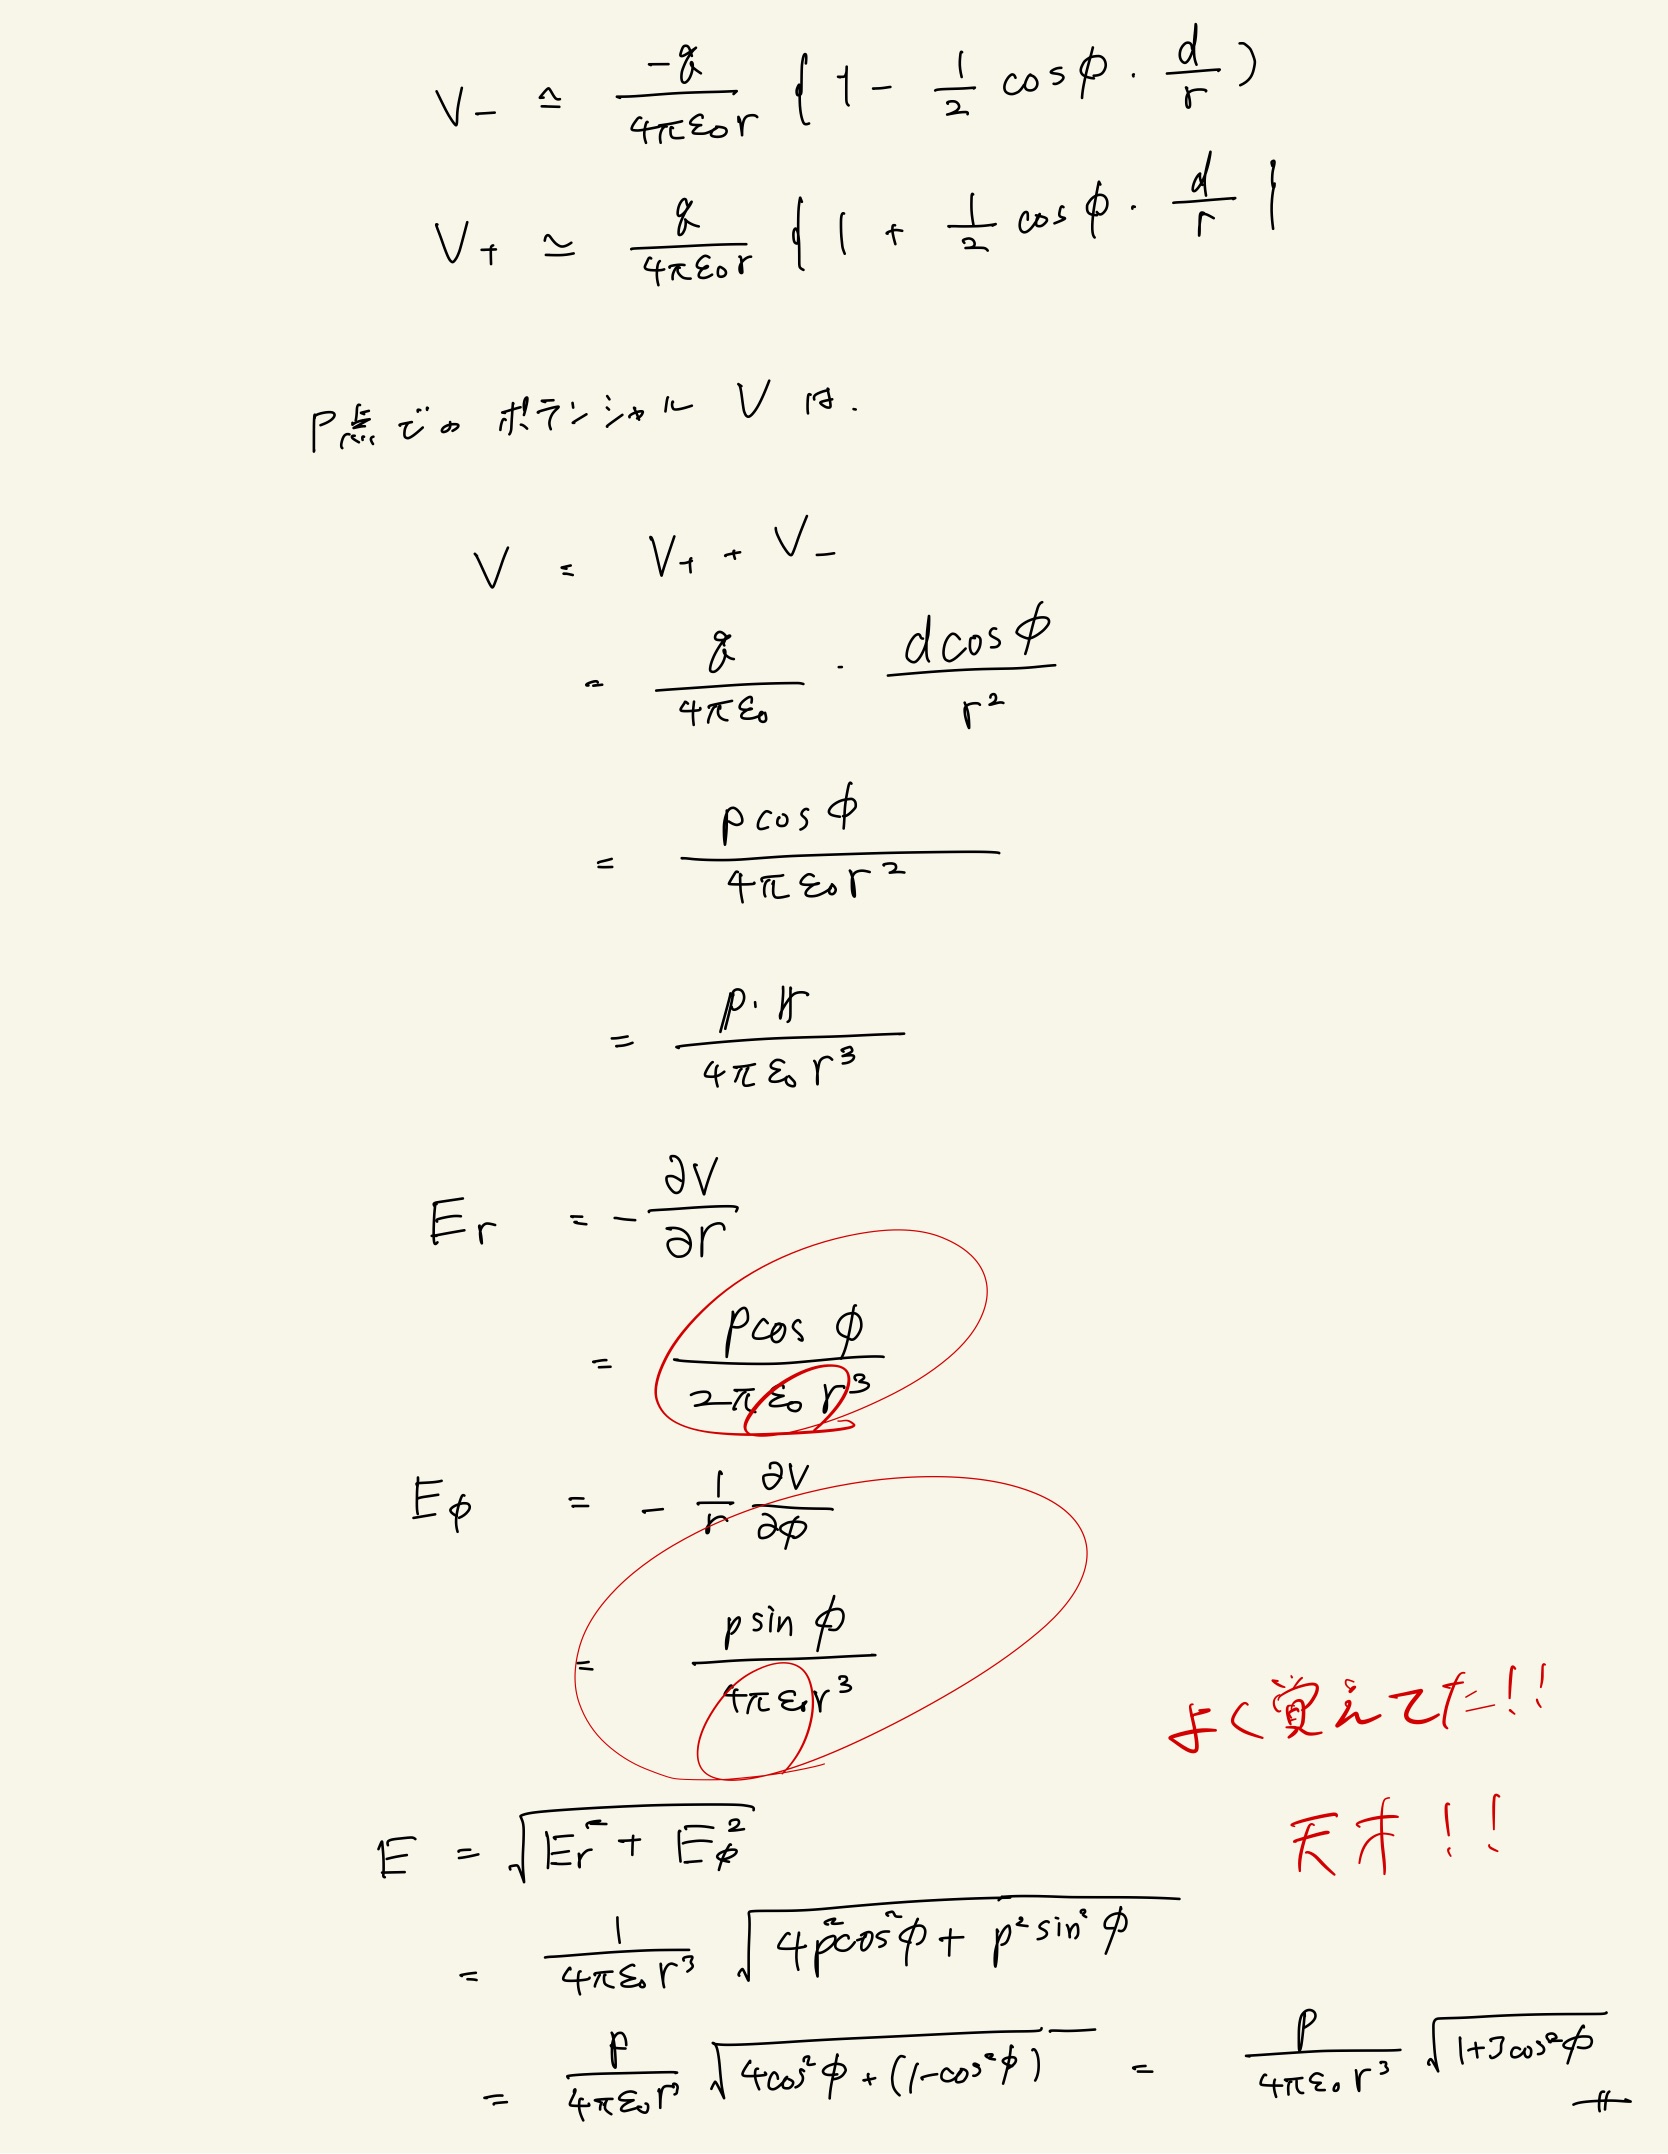 V₋ ≃ -q/4πε₀r { 1 - 1/2 cosφ · d/r )
V₊ ≃ q/4πε₀r { 1 + 1/2 cosφ · d/r |
P点でのポテンシャル V は.
V = V₊ + V₋
= q/4πε₀ · dcosφ/r²
= pcosφ/4πε₀r²
= p·r/4πε₀r³
Er = -∂V/∂r
= pcosφ/2πε₀r³
Eφ = -1/r ∂V/∂φ
= psinφ/4πε₀r³
よく覚えてた!!
天才!!
E = √Er² + Eφ²
= 1/4πε₀r³ √4p²cos²φ + p²sin²φ
= p/4πε₀r³ √4cos²φ + (1-cos²φ) = p/4πε₀r³ √1+3cos²φ